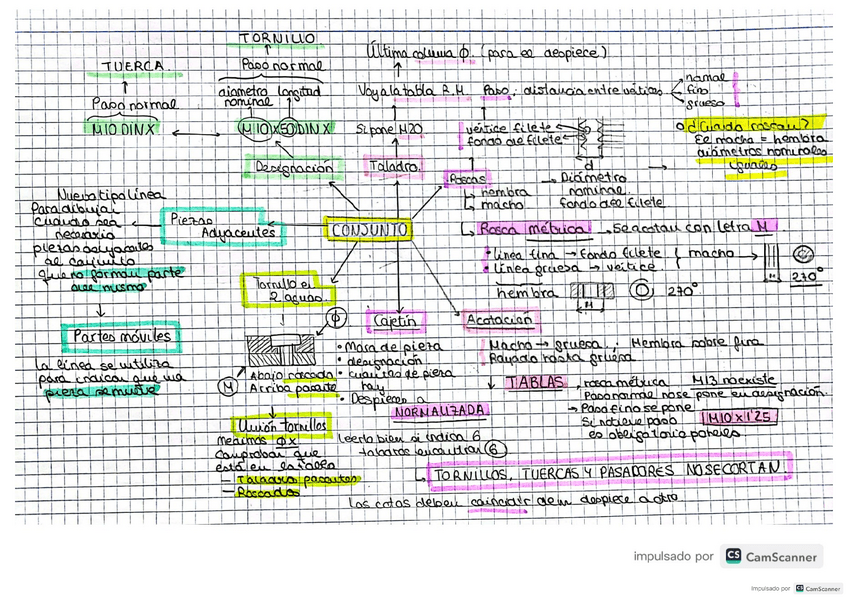 TORNILLO
TUERCA
Paso normal
diametro nominal longitud
Paso normal
M10 DIN X
M10X50 DIN X
Designación
Última columna Ø. (para el despiece)
Voy a la tabla R.M.
Si pone M20
Taladro
Paso: distancia entre vértices
normal
fino
grueso
vértice filete
fondo de filete
d
Diámetro nominal
fondo del filete
¿Cuándo roscan?
El macho = hembra
diámetros nominales
iguales
Roscas
hembra
macho
Rosca métrica → Se acotan con letra M
línea fina → fondo filete
línea gruesa → vértice
macho →
270º
hembra
M
270º
CONJUNTO
Piezas Adyacentes
Nuevo tipo línea
Para dibujar
cuando sea
necesario
piezas adyacentes
al conjunto
que no forman parte
del mismo
Partes móviles
la línea se utiliza
para indicar que una
pieza se mueve
Tornillo en
2 aguas.
Ø
M
Abajo roscada
Arriba pasante
Unión tornillos
Medimos Ø x
comprobar que
está en la tabla
— Taladros pasantes
— Roscados
Cajetín
• Masa de pieza
• designación
• cuantas de pieza
hay
• Despiece a
NORMALIZADA
leerlo bien si indica 6
6
Acotación
Macho → gruesa; Hembra sobre fina
Rayado hasta gruesa
TABLAS, rosca métrica M13 no existe
Paso normal no se pone en designación.
→ Paso fino se pone
M10 x 1'25
Si no tiene paso
es obligatorio ponerles
TORNILLOS, TUERCAS Y PASADORES NO SE CORTAN.
Las cotas deben coincidir de un despiece a otro
impulsado por CS CamScanner
Impulsado por CS CamScanner